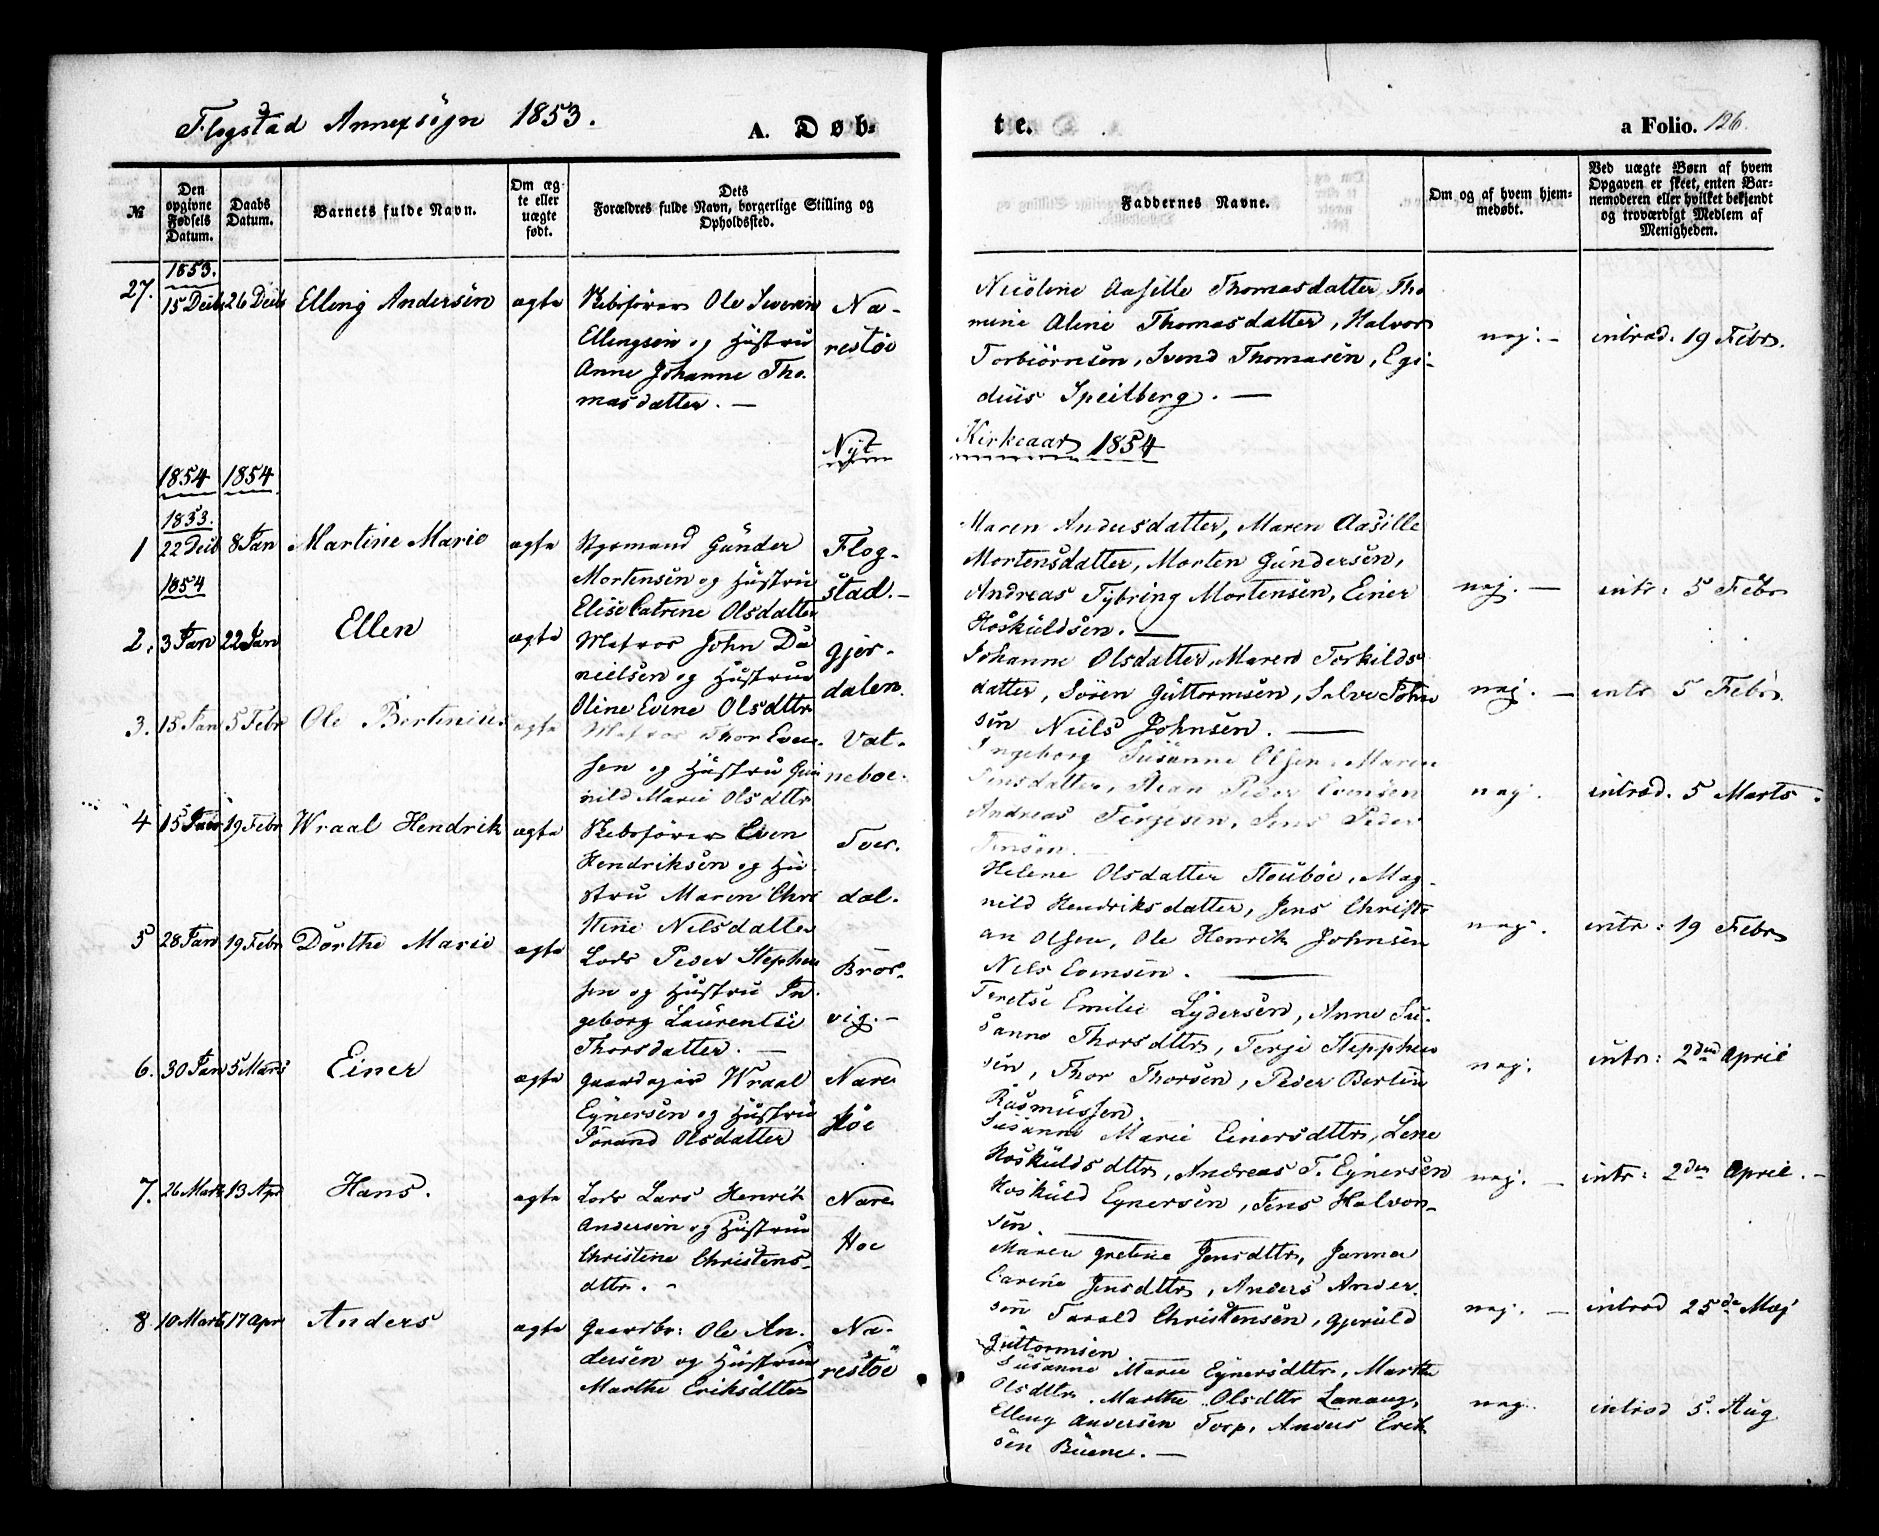 Flogstad Annexsogn 1853.
A. Døb-
te.
a Folio. 126.
№
Den opgivne Fødsels Datum.
Daabs Datum.
Barnets fulde Navn.
Om ægte eller uægte født.
Dets Forældres fulde Navn, borgerlige Stilling og Opholdssted.
Faddernes Navne.
Om og af hvem hjemmedøbt.
Ved uægte Børn af hvem Opgaven er skeet, enten Barnemoderen eller hvilket bekjendt og troværdigt Medlem af Menigheden.
1853.
27. 15 Decb 26 Decb Elleng Andersen ægte
Skibsfører Ole Severin
Ellengsen og Hustru
Anne Johanne Tho
masdatter. —
Na-
restöe
Nicoline Aasille Thomasdatter, Tho
mine Aline Thomasdatter, Halvor
Torbiörnsen, Svend Thomasen, Egi-
dius Speilberg. —
nej. — introd. 19 Febr.
Nyt Kirkeaar 1854
1854 1854
1853.
1 22 Decb 8 Jan Martine Marie ægte
Styrmand Gunder
Mortensen og Hustru
Elise Catrine Olsdatter
Flog-
stad. —
Maren Andersdatter, Maren Aasille
Mortensdatter, Morten Gundersen,
Andreas Tybring Mortensen, Einer
Hoskuldsen. —
nej. — intr: 5 Febr
1854
2. 3 Jan 22 Jan Ellen ægte
Matros John Da
nielsen og Hustru
Oline Evine Olsdttr
Gjer-
dalen.
Johanne Olsdatter, Maren Torkilds
datter, Sören Guttormsen, Salve John
sen Niels Johnsen. —
nej. — intr 5 Febr.
3. 15 Jan 5 Febr Ole Bertinius ægte
Matros Thor Even-
sen og Hustru Gun
nild Marie Olsdttr
Vat-
neboe.
Ingeborg Susanne Olsen, Maren
Jensdatter, Peder Evensen
Andreas Terjesen, Jens Peder
Jensen.
nej. introd. 5 Marts.
4 15 Jan 19 Febr Wraal Hendrik ægte
Skibsfører Even
Hendriksen og Hu
stru Maren Chri
stine Nilsdatter
Tver-
dal.
Helene Olsdatter Stouböe, Mag-
nild Hendriksdatter, Jens Christi
an Olsen, Ole Henrik Johnsen
Nils Evensen. —
nej. intr: 19 Febr
5 28 Jan 19 Febr Dorthe Marie ægte
Lods Peder Stephen
sen og Hustru In-
geborg Laurentse
Thorsdatter. —
Bros-
vig. —
Teretse Emilie Lydersen, Anne Su-
sanne Thorsdttr, Terje Stepphen
sen, Thor Thorsen, Peder Bertin
Rasmussen.
nej. intr: 2den April
6. 30 Jan 5 Marts Einer ægte
Gaardejer Wraal
Eynersen og Hustru
Jorand Olsdatter
Nare
stöe
Susanne Marie Einersdttr, Lene
Hoskuldsdttr, Andreas T. Eynersen
Hoskuld Eynersen, Jens Halvor-
sen. —
nej. — intr: 2den April. —
7. 26 Marts 13 Apr Hans. ægte
Lods Lars Henrik
Andersen og Hustru
Christine Christens-
dttr. -
Nare
stoe
Maren Gretine Jensdttr, Janna
Carine Jensdttr, Anders Ander-
sen Tarald Christensen, Gjeruld
Guttormsen.
nej. — introd 25de Maj
8. 10 Marts 17 Apr Anders ægte
Gaardbr: Ole An-
dersen og Hustru
Marthe Eriksdtter
Na-
restöe
Susanne Marie Eynersdttr, Marthe
Olsdttr. Marthe Olsdttr Lanaug,
Elleng Andersen Torp, Anders Erik
sen Buene. —
nej. introd 5. Aug